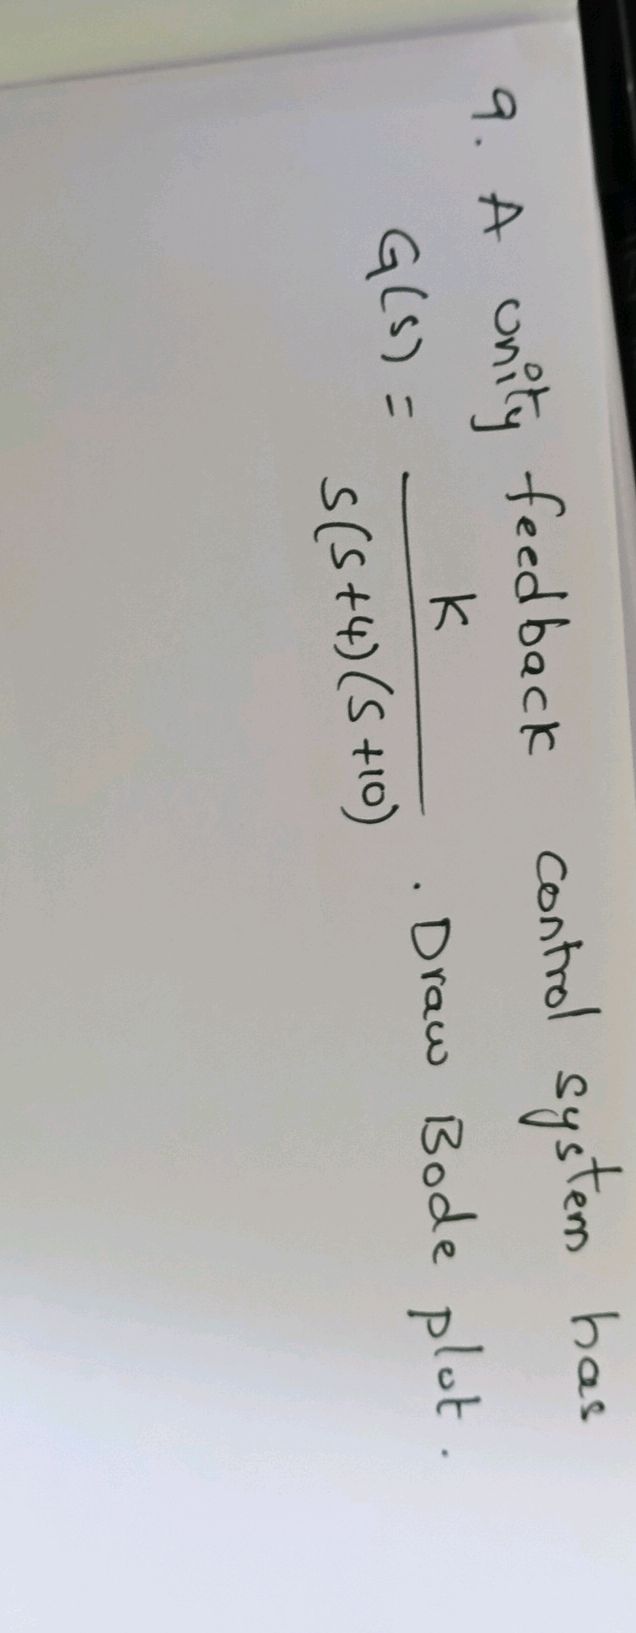 9. A unity feedback control system has
G(s) = K / s(s+4)(s+10) . Draw Bode plot.